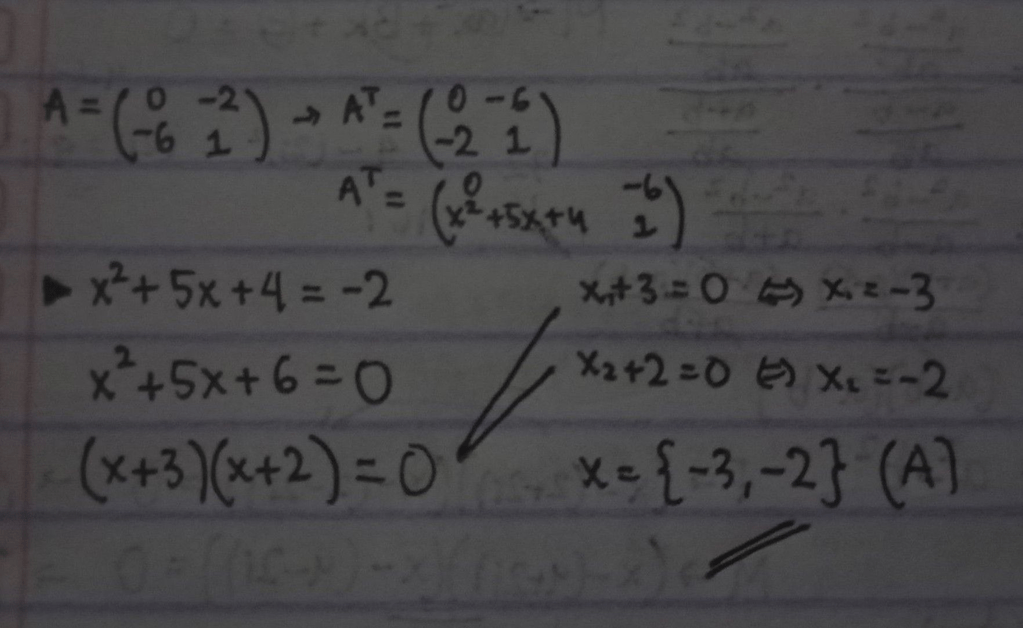 A = (0 -2 -6 1) → Aᵀ = (0 -6 -2 1)
Aᵀ = (0 -6 x²+5x+4 1)
▶ x²+5x+4 = -2
x²+5x+6 = 0
(x+3)(x+2) = 0
x₁+3 = 0 ⇔ x₁ = -3
x₂+2 = 0 ⇔ x₂ = -2
x = {-3, -2} (A)